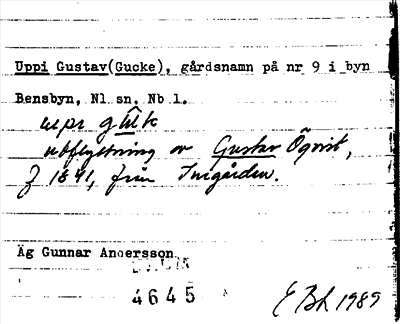 Uppi Gustav(Gucke), gårdsnamn på nr 9 i byn
Bensbyn, Nl sn, Nb l.
utflyttning av Gustav Öqvist,
f 1841, från Inigården.
Äg Gunnar Andersson
4645
EBh 1989